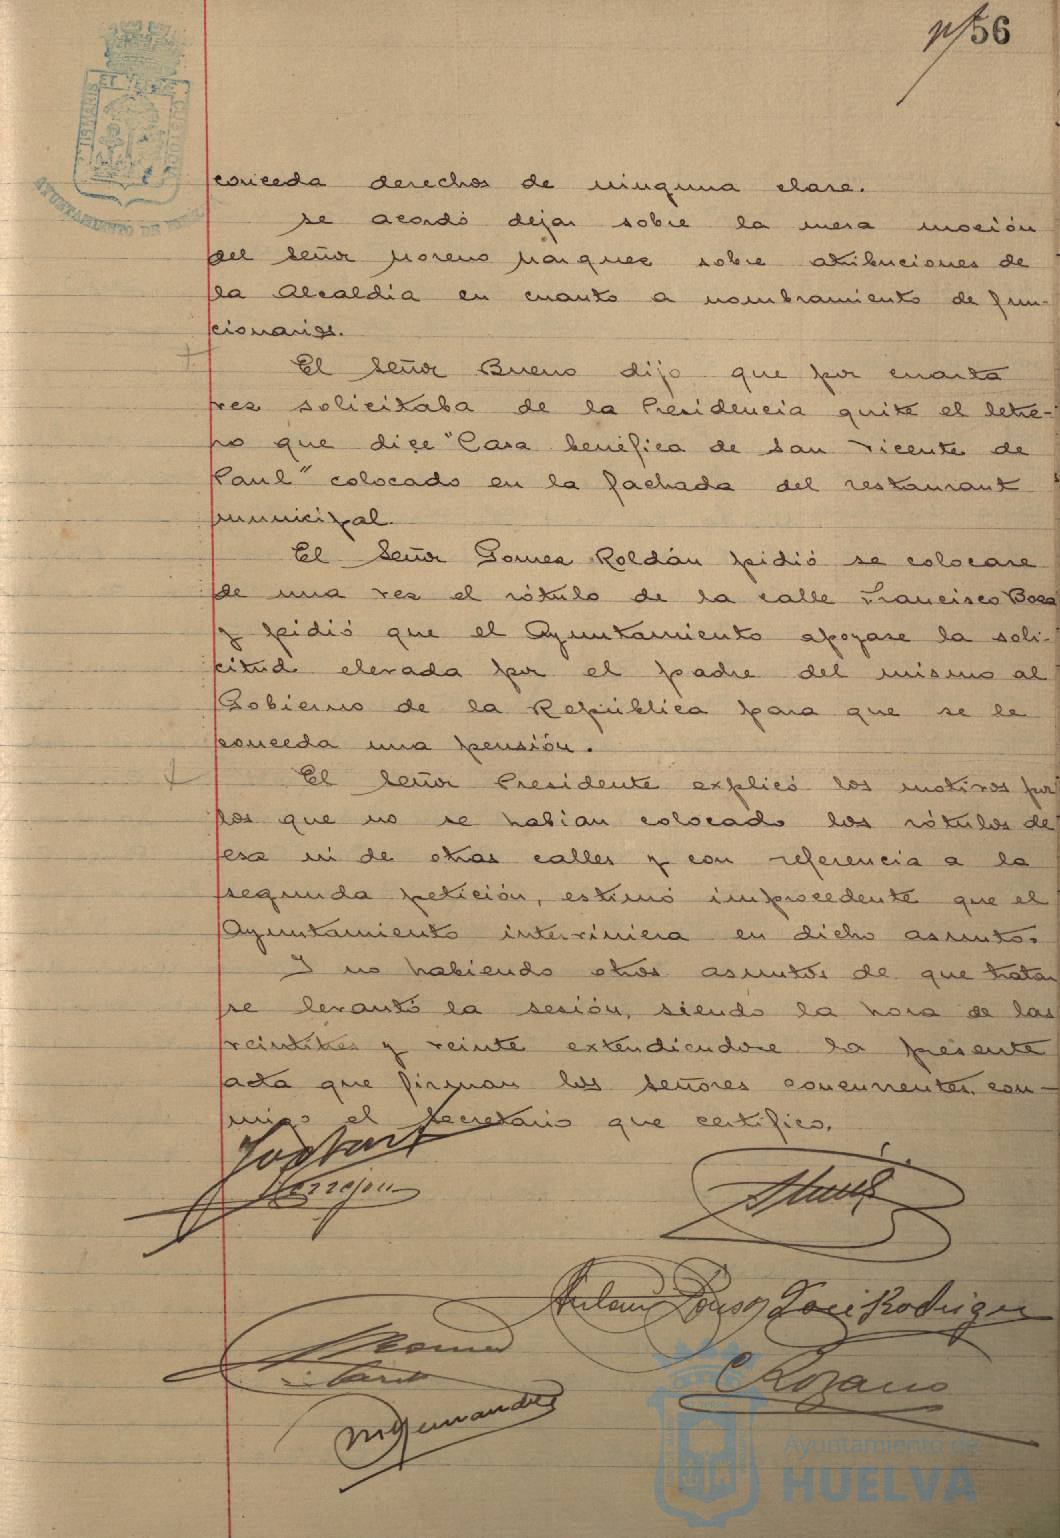 56
conceda derechos de ninguna clase.
Se acordó dejar sobre la mesa moción
del Señor Moreno Marquez sobre atribuciones de
la Alcaldía en cuanto a nombramiento de fun-
cionarios.
El Señor Bueno dijo que por cuarta
vez solicitaba de la Presidencia quite el letre-
ro que dice "Casa benéfica de San Vicente de
Paul" colocado en la fachada del restaurant
municipal.
El Señor Gomez Roldán pidió se colocase
de una vez el rótulo de la calle Francisco Boza
y pidió que el Ayuntamiento apoyase la soli-
citud elevada por el padre del mismo al
Gobierno de la República para que se le
conceda una pensión.
El Señor Presidente explicó los motivos por
los que no se habían colocado los rótulos de
esa ni de otras calles y con referencia a la
segunda petición, estimó improcedente que el
Ayuntamiento interviniera en dicho asunto.
Y no habiendo otros asuntos de que tratar
se levantó la sesión, siendo la hora de las
veintitres y veinte extendiendose la presente
acta que firman los señores concurrentes con-
migo el Secretario que certifico.
José Rodriguez
Ayuntamiento de
HUELVA